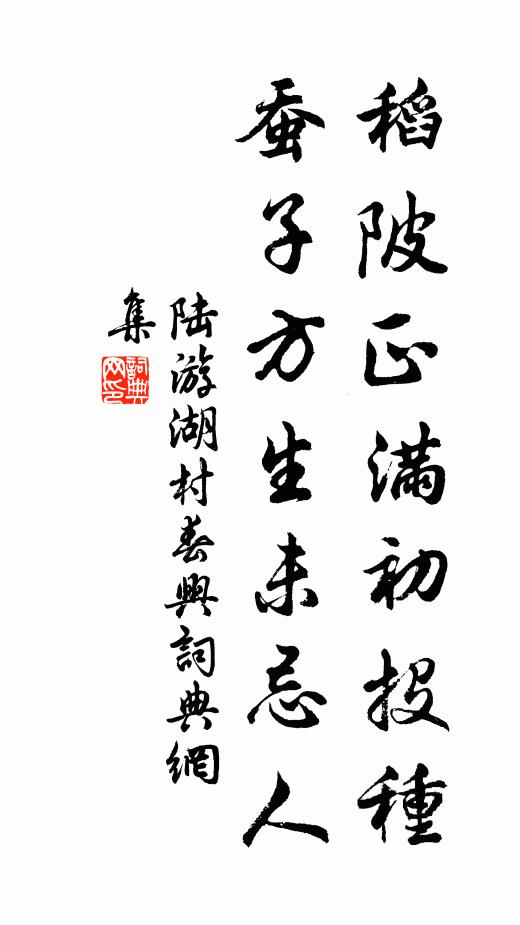 稻陂正滿初投種
蚕子方生未忌人
陸游湖村春興詞典網
集
詞典
网印